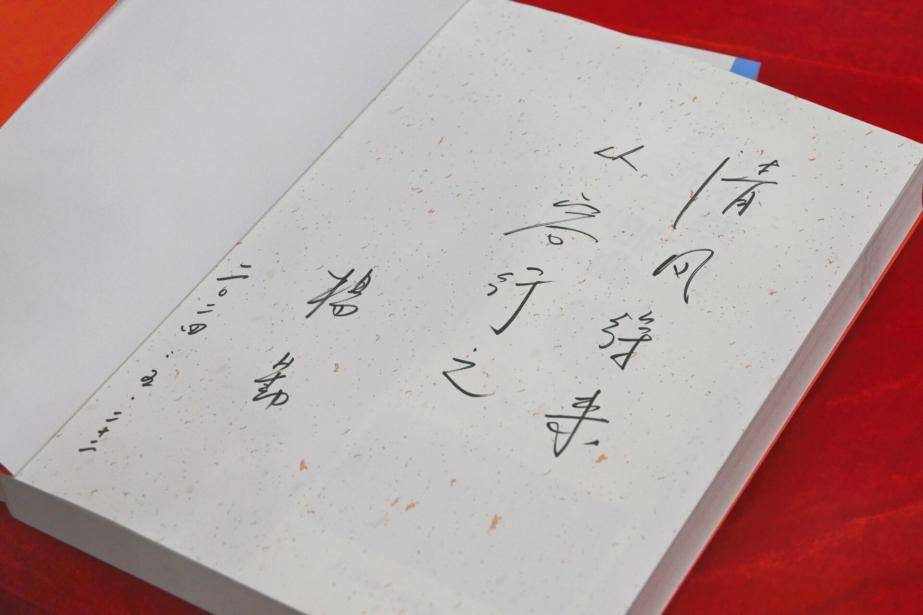 清风徐来
以容行之
杨勤
二〇二四.五.二十二